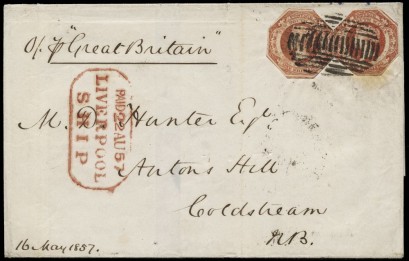 o/. p "Great Britain"
PAID 22 AU 57
LIVERPOOL
SHIP
M. D. Hunter Esqr
Antons Hill
Coldstream
N.B.
16 May 1857.